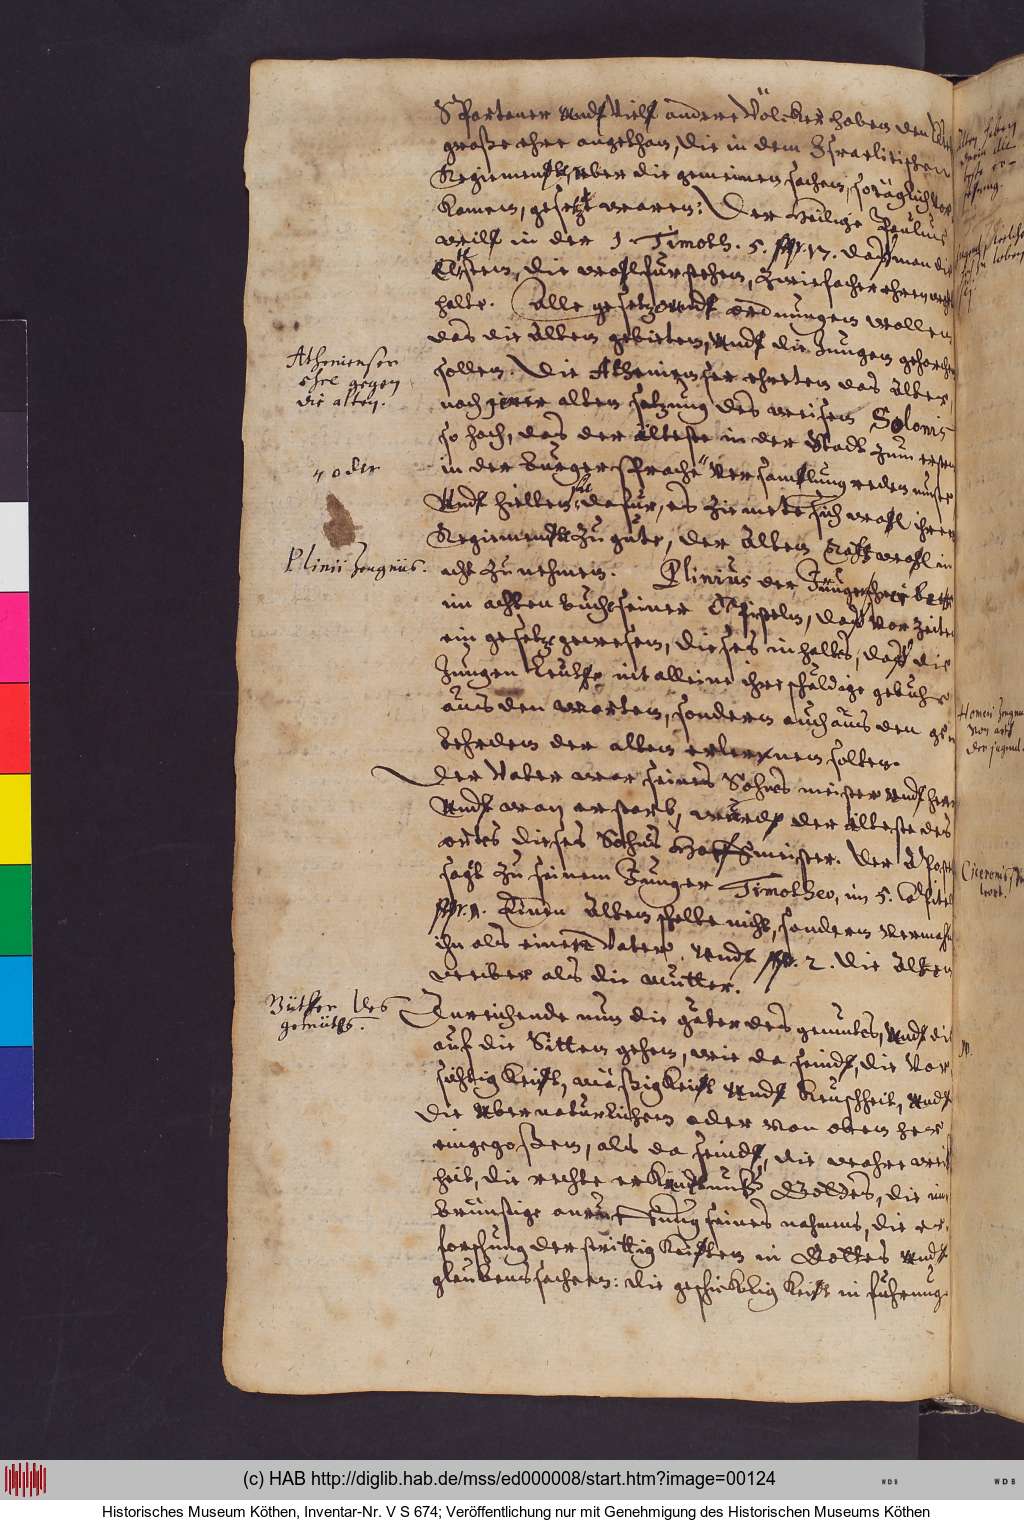 Spartener undt Vielt andere Völcker haben den
große ehre angethan, die in dem Israelitischen
Regiementh, uber die gemeinen sachen, so täglich vor
kamen, gesetzt waren: Der Heilige Paulus
weilt in der 1. Timoth. 5. spr. 17. daß man die
Eltsten, die wohl fürstehen, zwiefacher ehren wehrt
halte. Alle gesetz undt ordnungen wollen
das die Alten gebieten, undt die Jungen gehorchen
sollen. Die Athenienser ehreten das Alter,
nach jener alten satzung des weisen Solonis
so hoch, das der älteste in der Stadt zum ersten
in der bürgersprache versamlung reden muste
Undt hielten sie dafür, es ziemete sich wohl ihrem
Regiementh zu gute, der Alten Raht wohl in
acht zu nehmen. Plinius der Jünger schreibett
im achten buch seiner Episteln, daß vor zeiten
ein gesetz gewesen, dieses inhalts, daß die
Jungen Leuthe nit alleine ihre schuldige gebühr
aus den worten, sondern auch aus den ge
behrden der alten erlernen solten.
Der Vater war seines Sohns meister undt herr
Undt wan er starb, wurde der älteste des
ortes dieses Sohns Hoffmeister. Der Apostel
sagt zu seinem Jünger Timotheo, im 5. Capitel
spr. 1. Einen Alten schelte nicht, sondern vermahne
ihn als einen Vater. Undt spr. 2. die Alten
weiber als die mütter.
Anreichende nun die güter des gemütes, undt die
auf die Sitten gehen, wie da seindt, die Vor
sichtigkeitt, mäßigkeitt undt Keuschheit, undt
die ubernatürlichen oder von oben her
eingegoßen, als da seindt, die wahre weis
heit, die rechte erkändtnuß Gottes, die in
brünstige anruffung seines nahmens, die er
forschung der strittigkeitten in Gottes undt
glaubens sachen: die geschickligkeitt in führung
Athenienser
ehre gegen
die alten.
oder
Plinii Zeugnüs.
Gütter des
gemüths.
Homeri Zeugnus
von art
der jugend.
Ciceronis
wort.
(c) HAB http://diglib.hab.de/mss/ed000008/start.htm?image=00124
WDB
WDB
Historisches Museum Köthen, Inventar-Nr. V S 674; Veröffentlichung nur mit Genehmigung des Historischen Museums Köthen